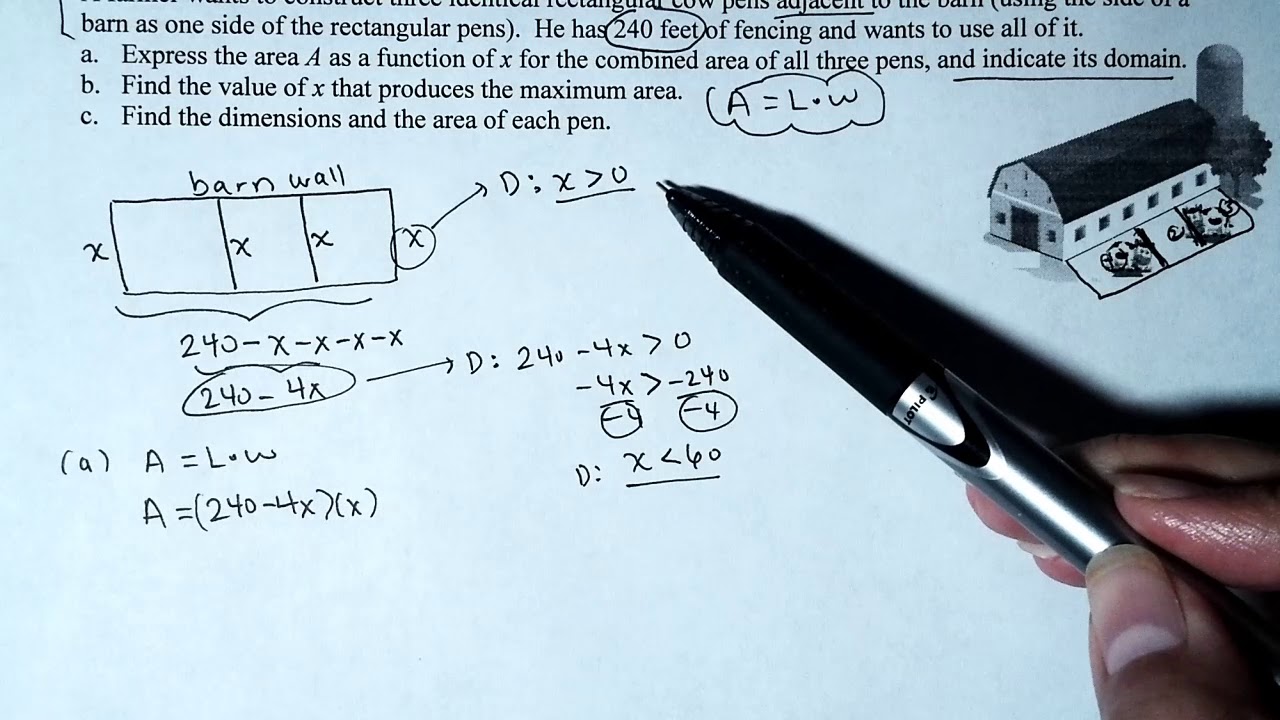 A farmer wants to construct three identical rectangular cow pens adjacent to the barn (using the side of a
barn as one side of the rectangular pens). He has 240 feet of fencing and wants to use all of it.
a. Express the area A as a function of x for the combined area of all three pens, and indicate its domain.
b. Find the value of x that produces the maximum area.
(A = L·W)
c. Find the dimensions and the area of each pen.
barn wall
x x x x
D: x > 0
240 - x - x - x - x
240 - 4x
D: 240 - 4x > 0
-4x > -240
-4 -4
D: x < 60
(a) A = L·W
A = (240 - 4x)(x)
PILOT